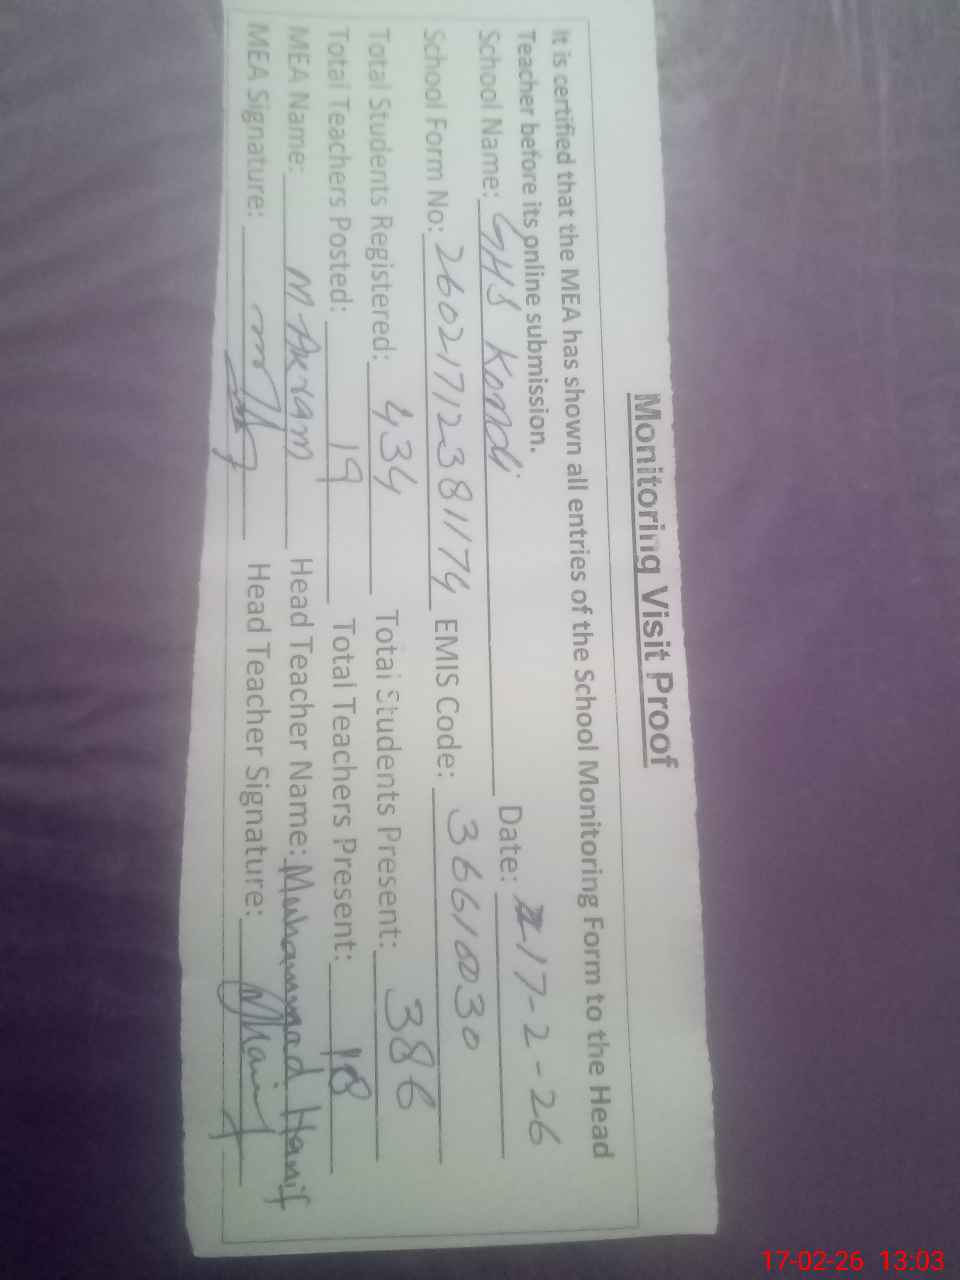 Monitoring Visit Proof
It is certified that the MEA has shown all entries of the School Monitoring Form to the Head
Teacher before its online submission.
School Name: GHS Kondi Date: 17-2-26
School Form No: 26021712381174 EMIS Code: 36610030
Total Students Registered: 434 Total Students Present: 386
Total Teachers Posted: 19 Total Teachers Present: 18
MEA Name: M Akram Head Teacher Name: Muhammad Hanif
MEA Signature: Head Teacher Signature: MHanif
17-02-26 13:03